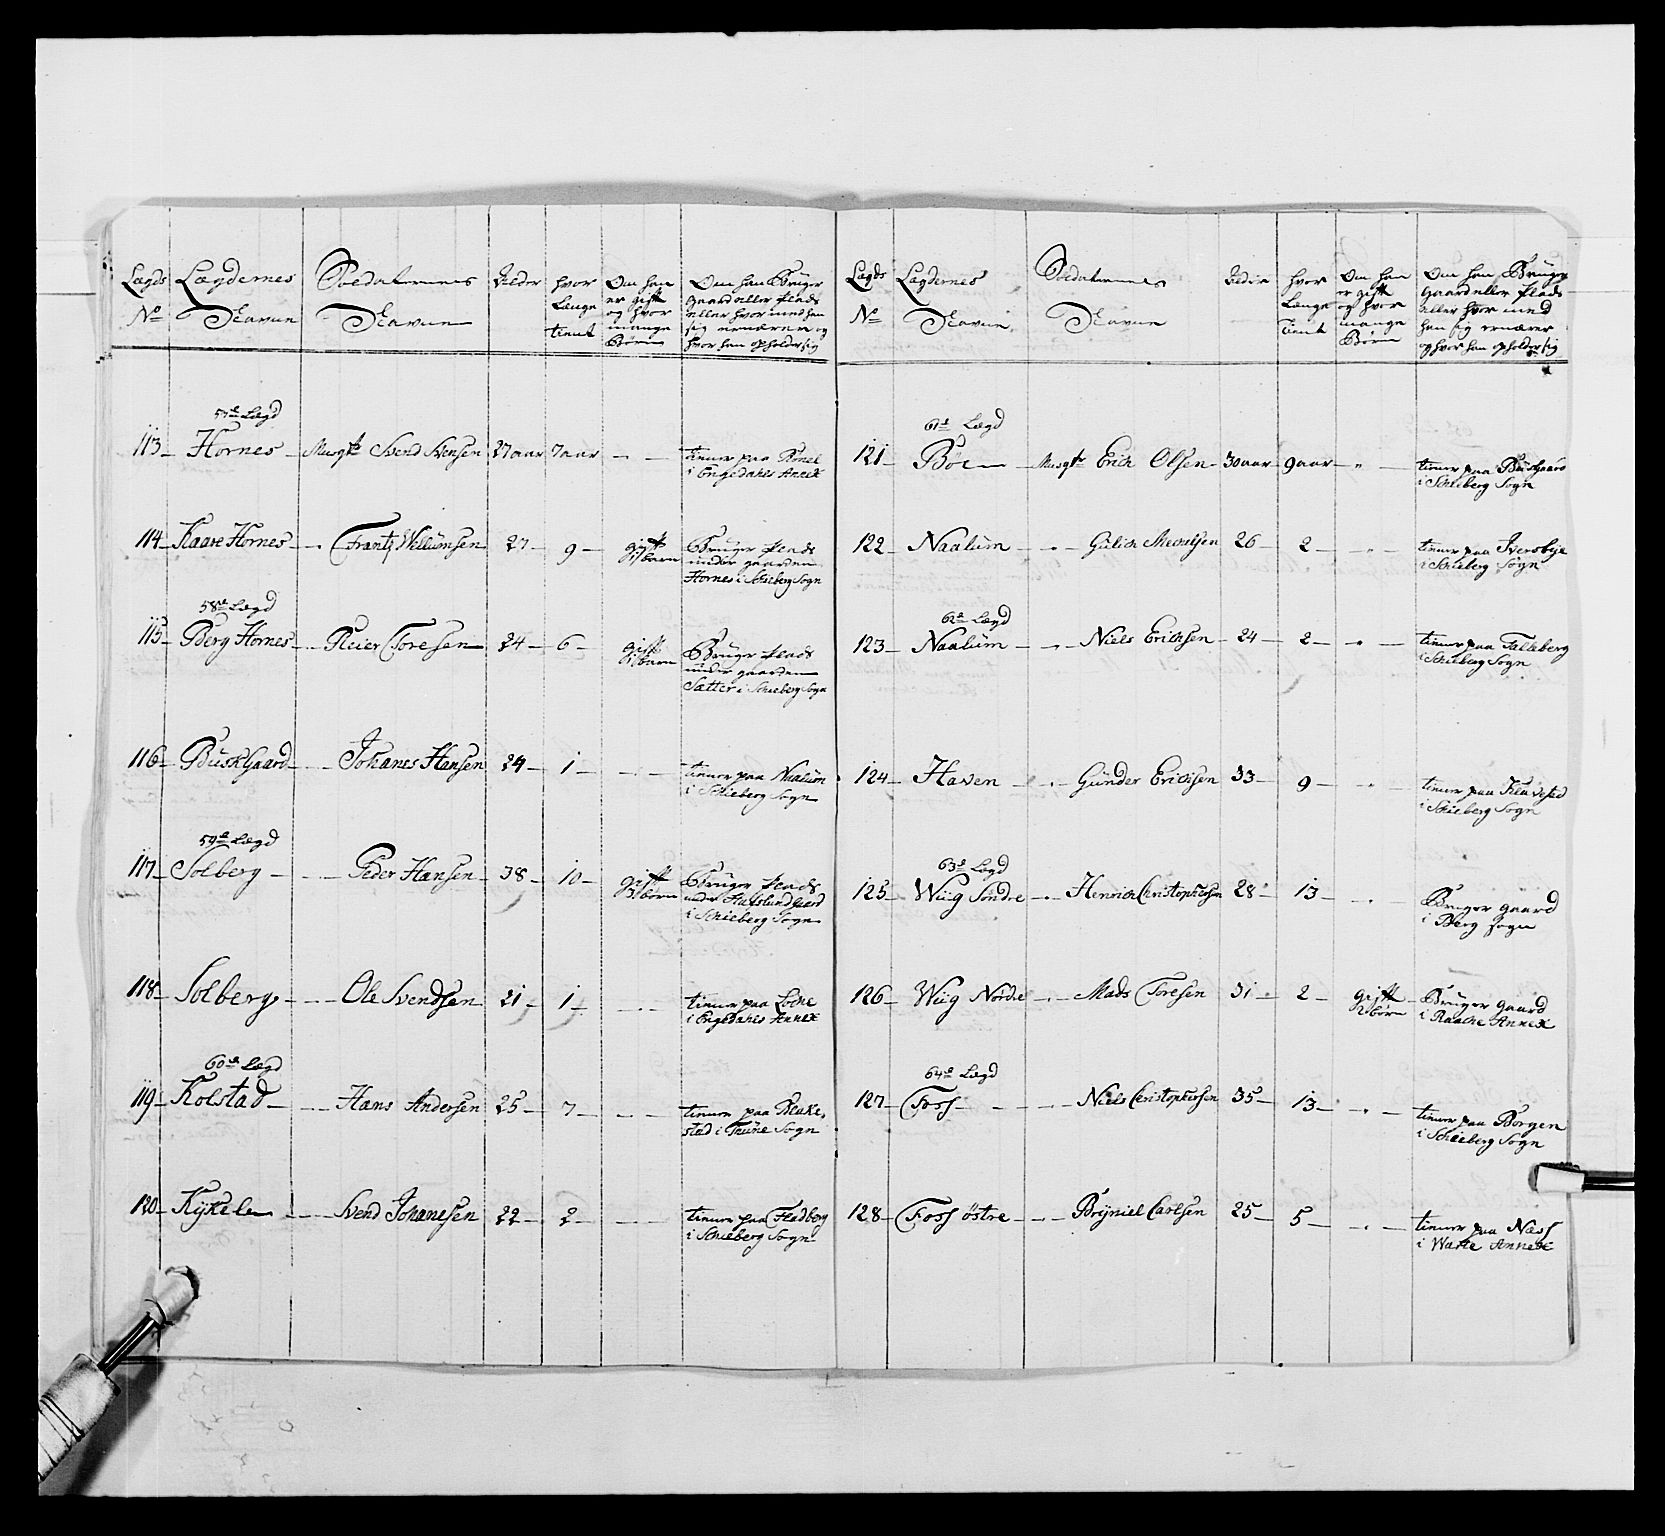 Lægds Lægdernes Soldaternes Alder hvor Om han Om han Bruger
No Navne Navne længe er gift gaard eller plads
tient og hvor eller hvor med han
mange sig ernærer og
Børn hvor han opholder sig
57de Lægd
113 Hornes Musqtr Svend Svensen 27 aar 7 aar tiener paa
i Engedahls Annex
114 Kaare Hornes Frantz Wellumsen 27 9 gift Bruger plads
1 barn under gaarden
Hornes i Schieberg Sogn
58de Lægd
115 Berg Hornes Reier Toresen 24 6 gift Bruger plads
1 barn under gaarden
Sætter i Schieberg Sogn
116 Buskgaard Johanes Hansen 24 1 tiener paa Naalum
i Schieberg Sogn
59de Lægd
117 Solberg Peder Hansen 38 10 gift Bruger plads
børn under Hafslund gaard
i Schieberg Sogn
118 Solberg Ole Svendsen 21 1 tiener paa
i Engedahls Annex
60de Lægd
119 Kolstad Hans Andersen 25 7 tiener paa Brake
stad i Tune Sogn
120 Kykelen Svend Johanesen 22 2 tiener paa Fladberg
i Schieberg Sogn
Lægds Lægdernes Soldaternes Alder hvor Om han Om han Bruger
No Navne Navne længe er gift gaard eller plads
tient og hvor eller hvor med
mange han sig ernærer
Børn og hvor han opholder sig
61de Lægd
121 Böe Musqtr Erich Olsen 30 aar 9 aar tiener paa Buskgaard
i Schieberg Sogn
122 Naalum Gulich Michelsen 26 2 tiener paa Iversbye
i Schieberg Sogn
62de Lægd
123 Naalum Niels Erichsen 24 2 tiener paa Falkeberg
i Schieberg Sogn
124 Haven Gunder Erichsen 33 9 tiener paa Klavestad
i Schieberg Sogn
63de Lægd
125 Wiig Söndre Henrich Christophersen 28 13 Bruger gaard
i Berg sogn
126 Wiig Nordre Mads Toresen 31 2 gift Bruger gaard
2 børn i Raade Annex
64de Lægd
127 Foss Niels Christophersen 35 13 tiener paa Borgen
i Schieberg Sogn
128 Foss østre Bryniel Carlsen 25 5 tiener paa Næss
i Annex